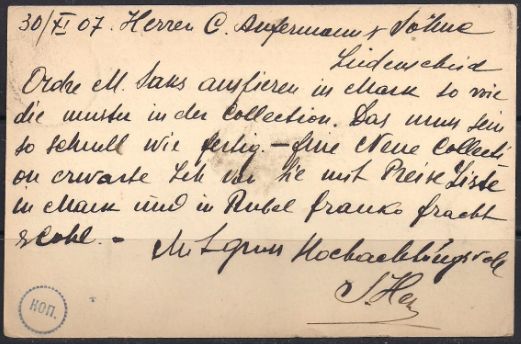 30/XI 07. Herren C. Assmann & Söhne
Lüdenscheid
Ordre M. Saks ausfieren in Mark so wie
die muster in der Collection. Das mus sein
so schnell wie fertig. — Eine Neue Collecti
on erwarte Ich von Sie mit Preise Liste
in Mark und in Rubel franko fracht
& Zohl. —
Mit gruss Hochachtungsvoll
КОП.